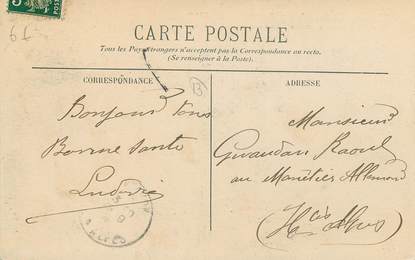 6f
CARTE POSTALE
Tous les Pays étrangers n'acceptent pas la Correspondance au recto.
(Se renseigner à la Poste).
CORRESPONDANCE
B
ADRESSE
Bonjour tous
Bonne Santé
Ludovic
ALPES
Monsieur
Givaudan Raoul
au
(Htes Alpes)